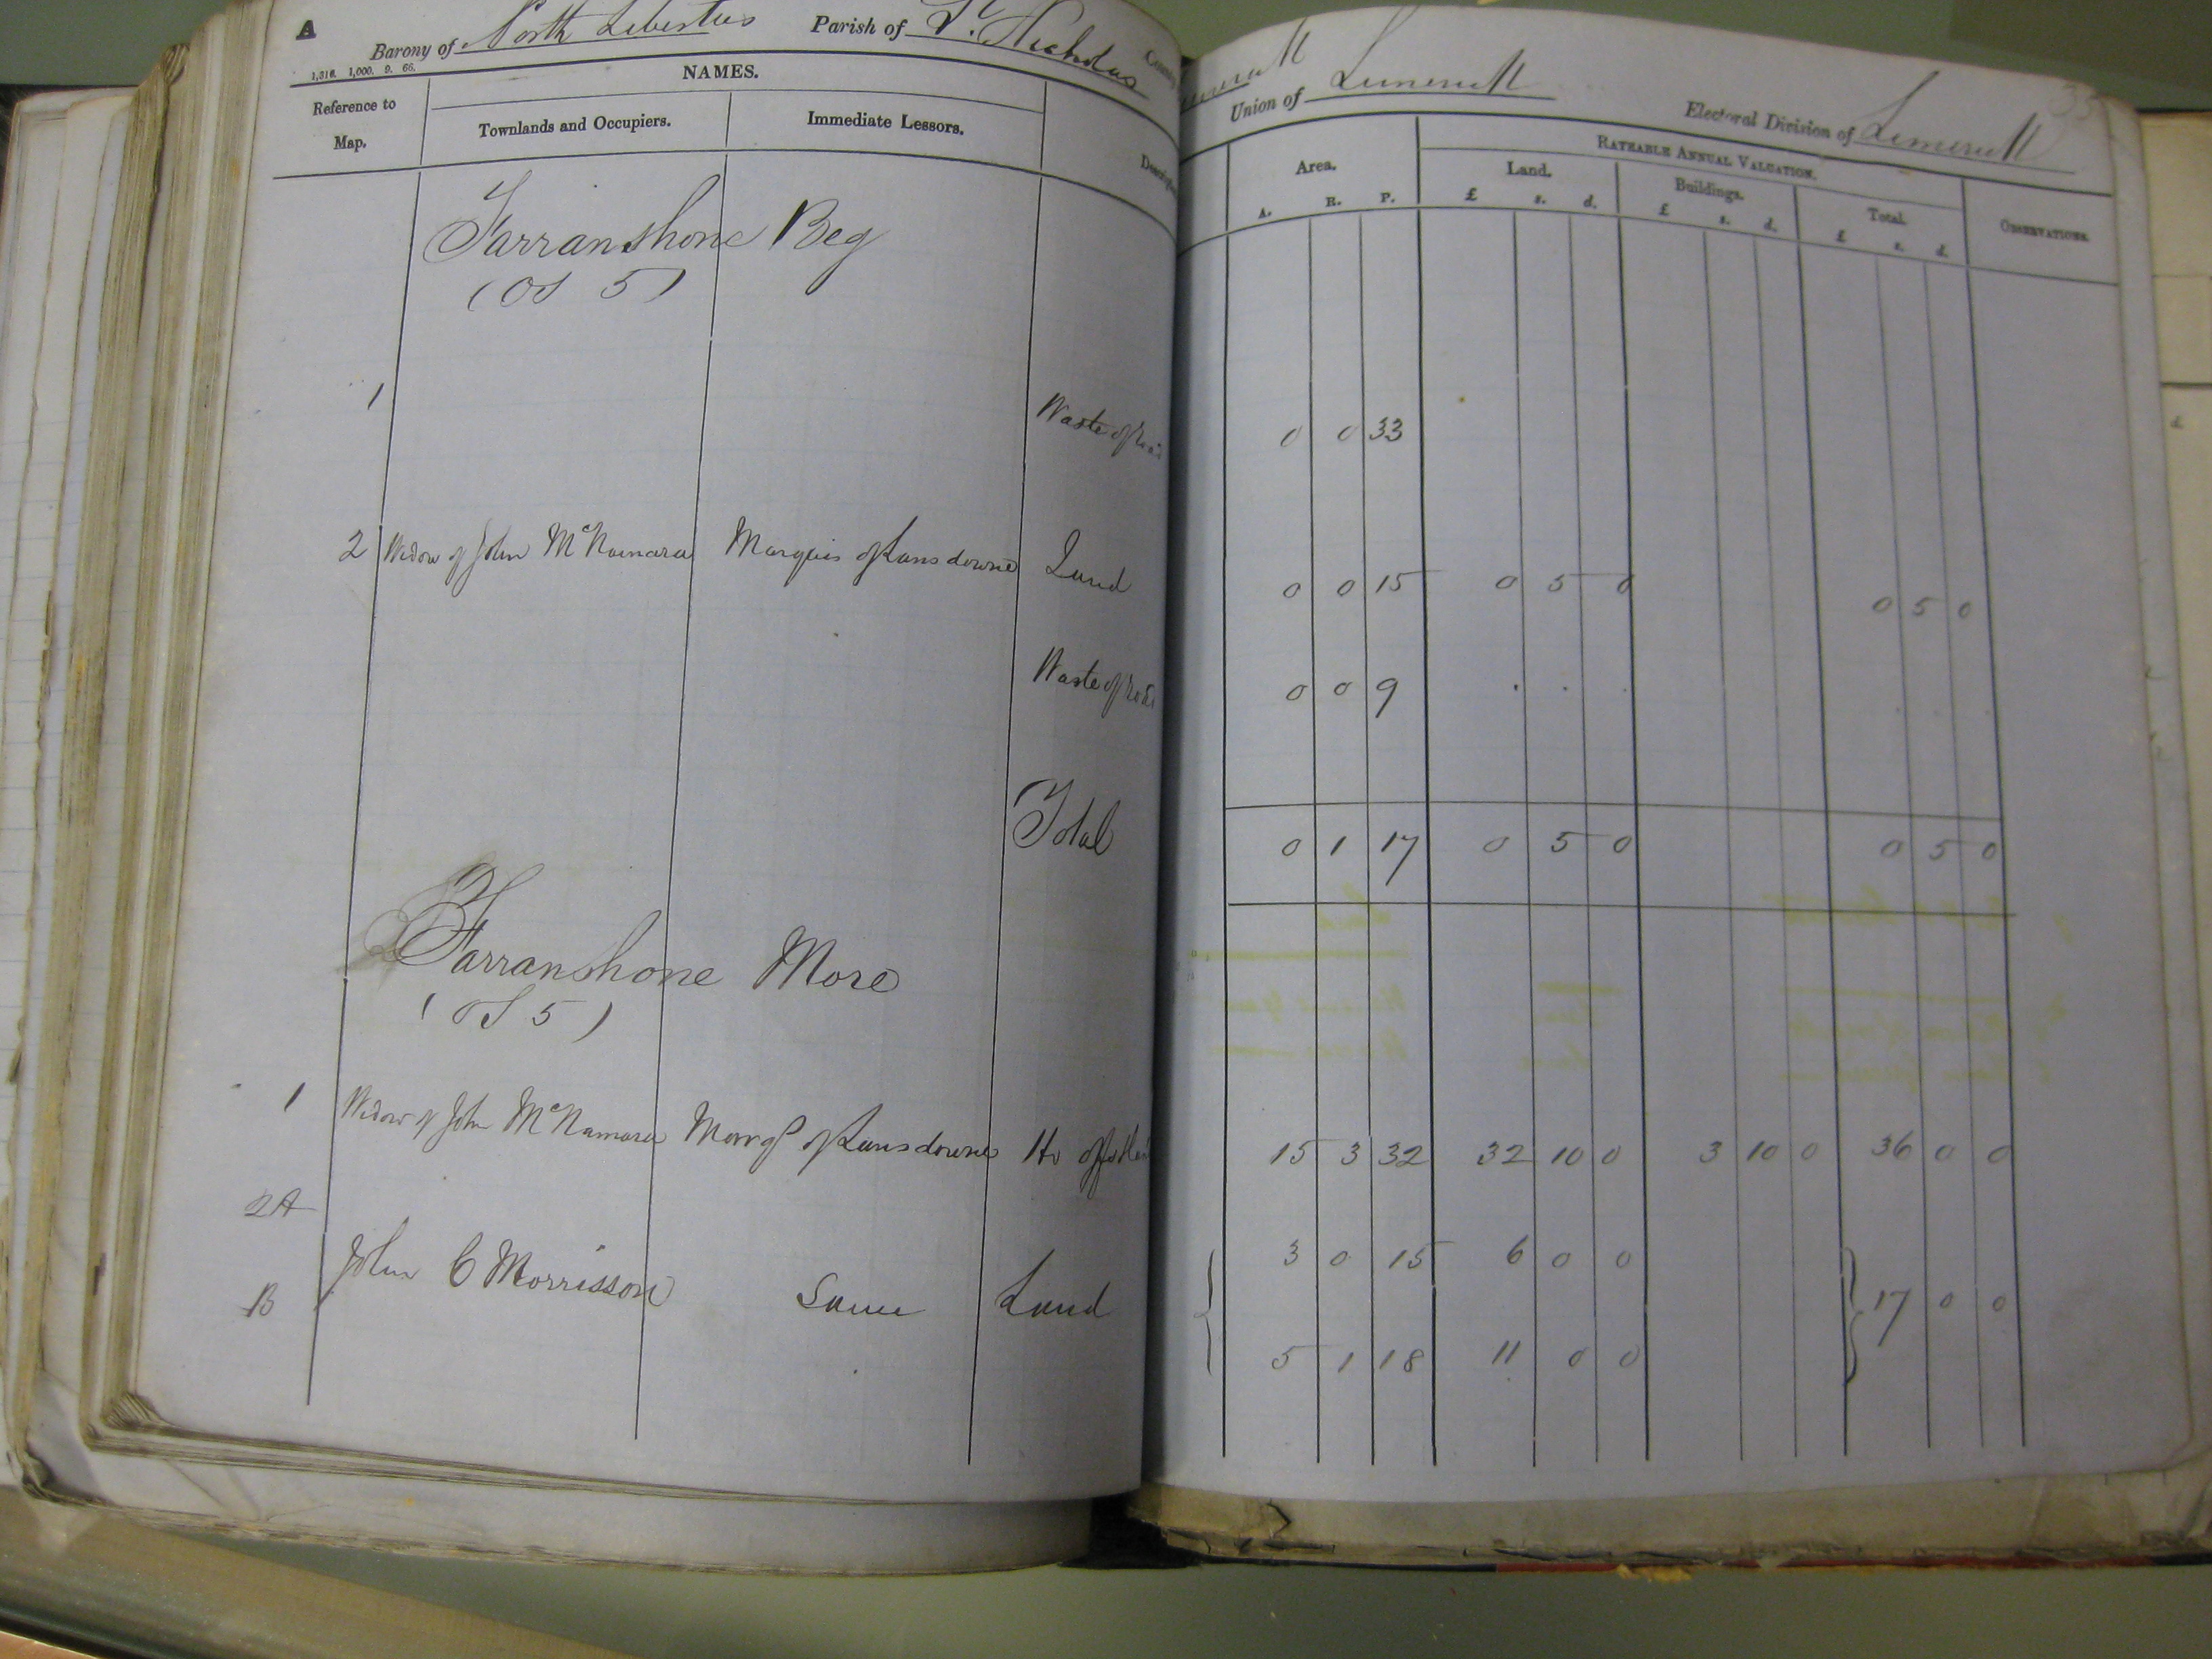 A
Barony of North Liberties Parish of St. Nicholas
Union of Limerick Electoral Division of Limerick
1,316. 1,000. 9. 66.
NAMES.
Reference to Map. Townlands and Occupiers. Immediate Lessors.
Area. RATEABLE ANNUAL VALUATION. OBSERVATIONS.
Land. Buildings. Total.
A. R. P. £ s. d. £ s. d. £ s. d.
Farranshone Beg
(OS 5)
1 Waste of 0 0 33
2 Widow of John McNamara Marquis of Lansdowne Land 0 0 15 0 5 0 0 5 0
Waste of 0 0 9 . . .
Total 0 1 17 0 5 0 0 5 0
Farranshone More
(OS 5)
1 Widow of John McNamara Marqs of Lansdowne Ho offs 15 3 32 32 10 0 3 10 0 36 0 0
2A 3 0 15 6 0 0
John C Morrisson Same Land 17 0 0
B 5 1 18 11 0 0